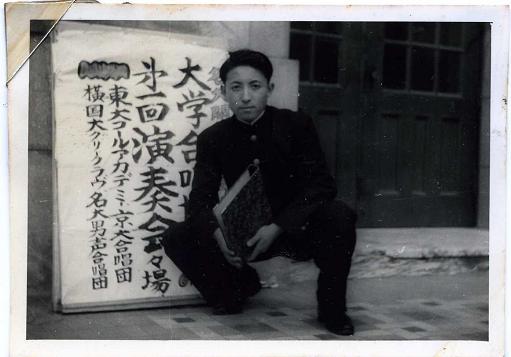 大学合唱
㐧一回演奏会々場
東大コールアカデミー 京大合唱団
横国大グリークラヴ 名大男声合唱団